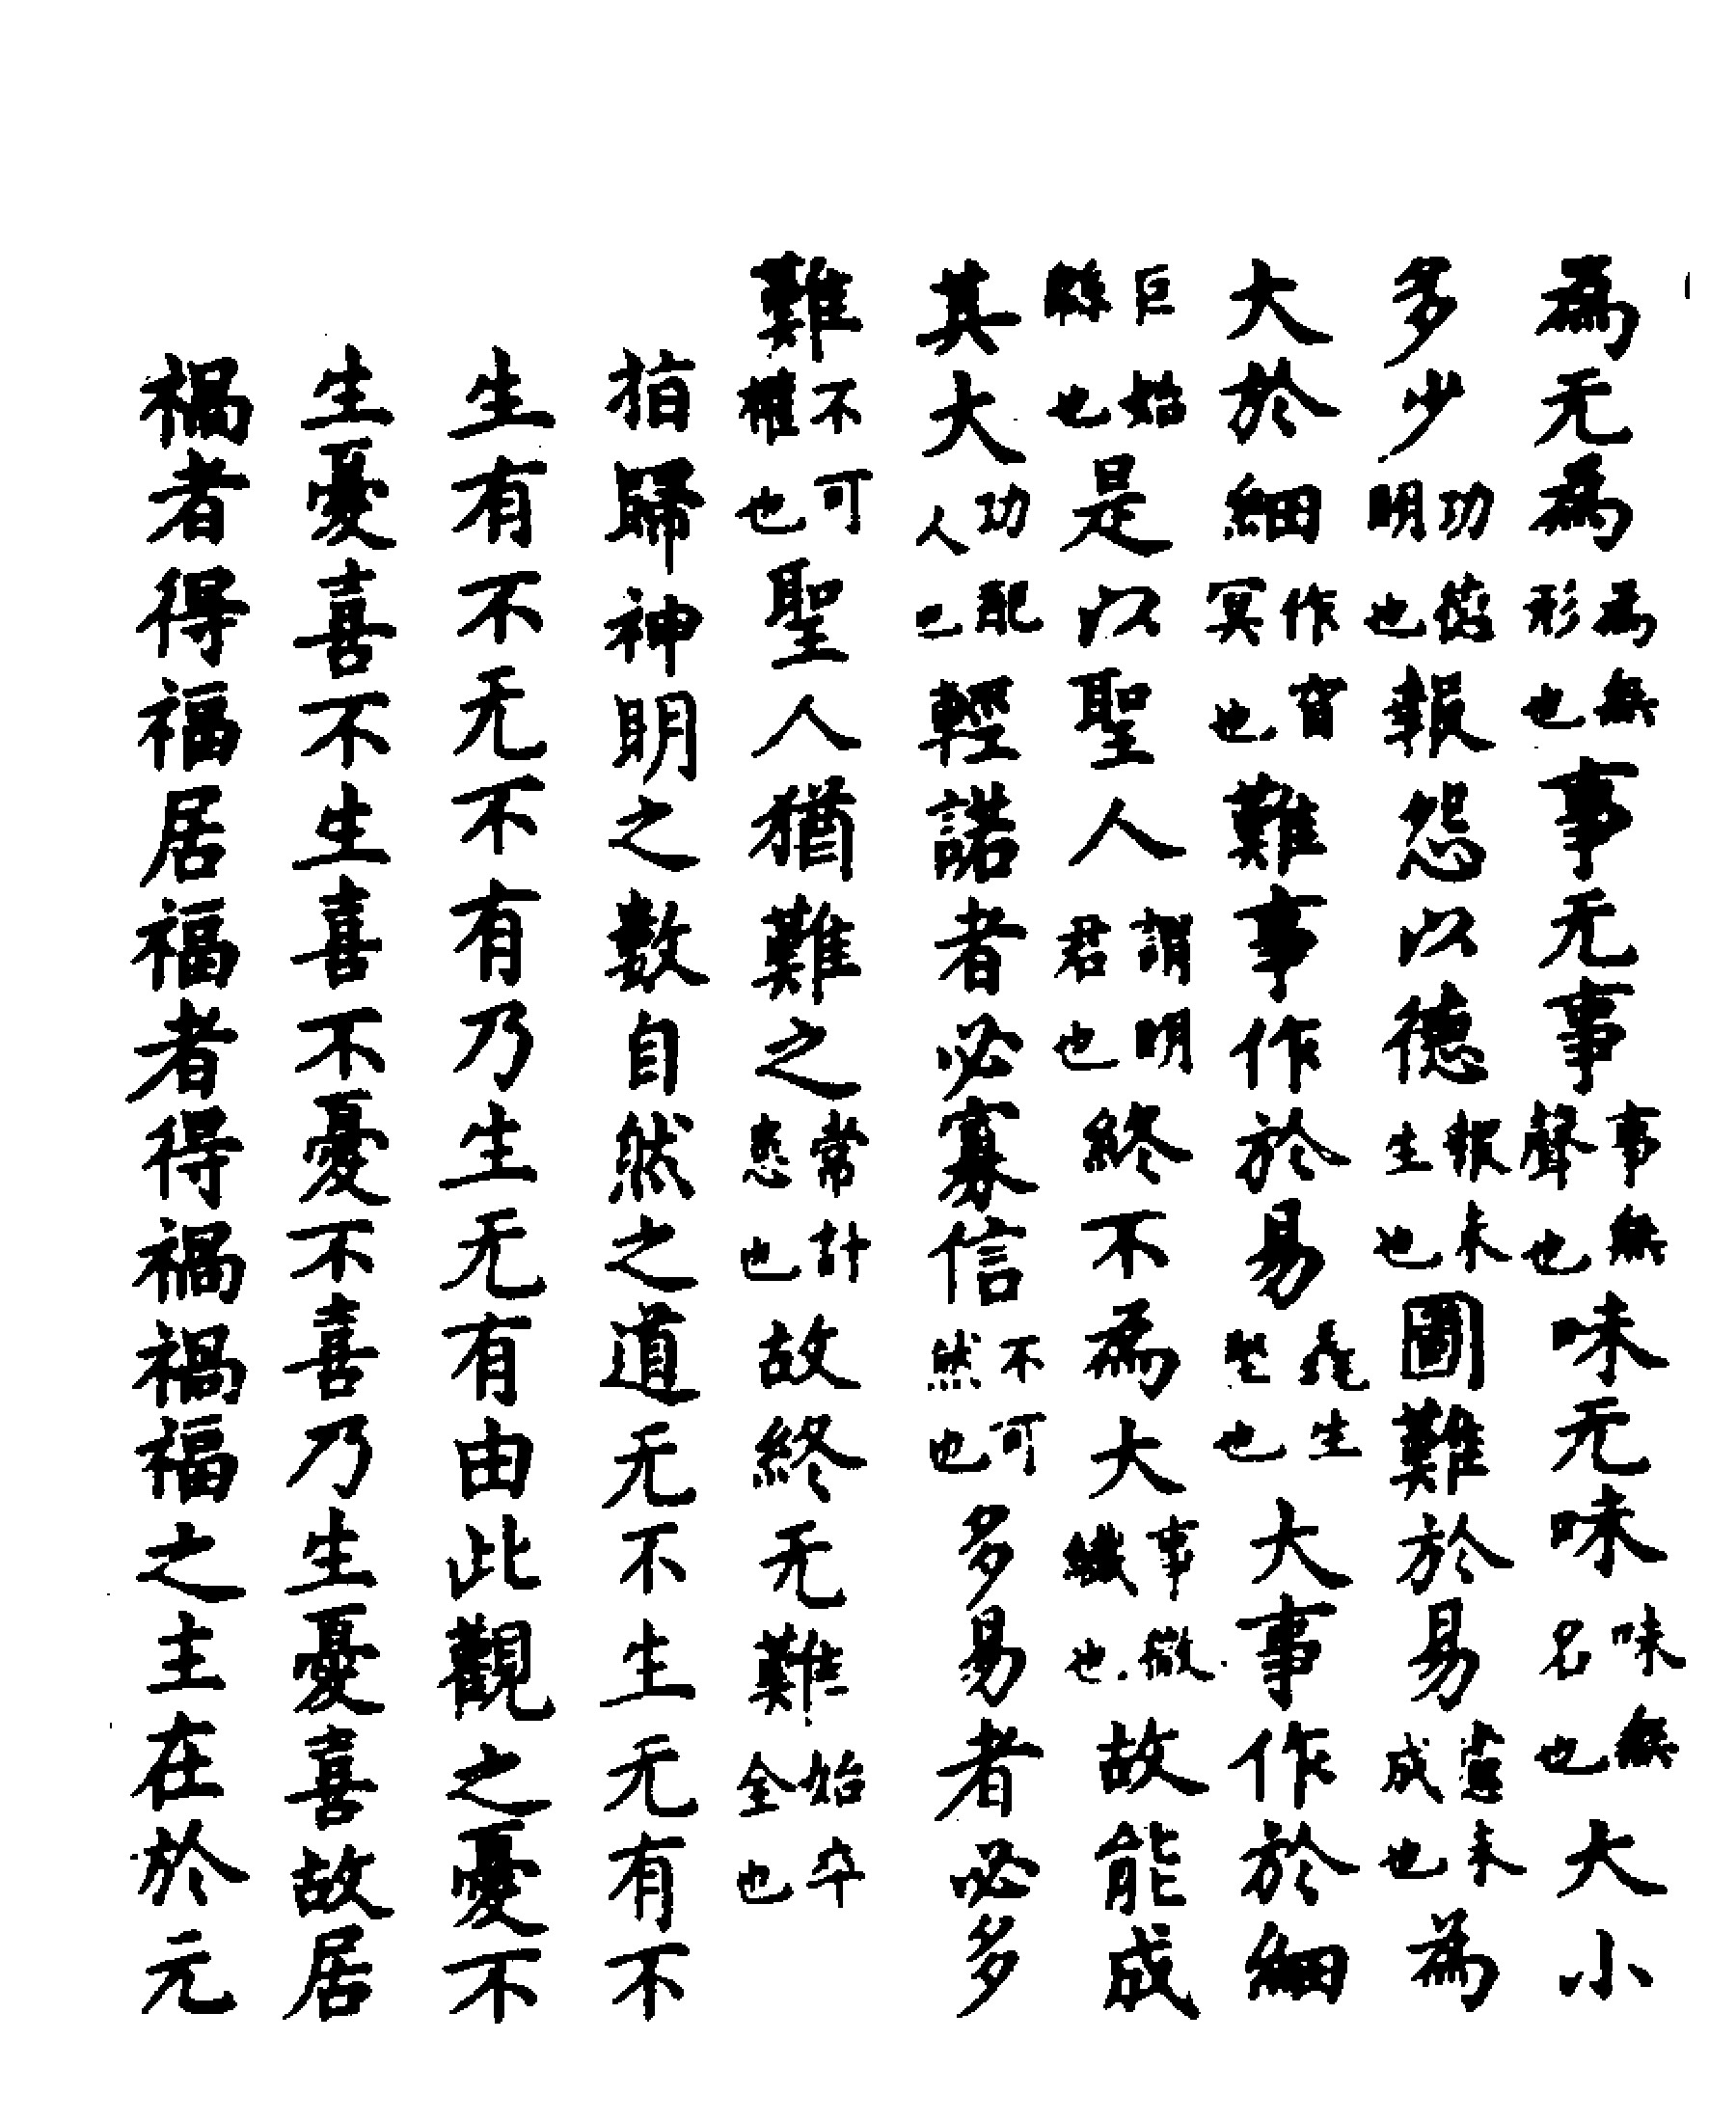 為无為為無形也事无事事無聲也味无味味無名也大小
多少功德明也報怨以德報未生也圖難於易慮未成也為
大於細作窅冥也難事作於易生也大事作於細
巨始緜也是以聖人謂明君也終不為大事微纖也故能成
其大功配人已輕諾者必寡信不可然也多易者必多
難不可權也聖人猶難之常計患也故終无難始卒全也
指歸神明之數自然之道无不生无有不
生有不无不有乃生无有由此觀之憂不
生憂喜不生喜不憂不喜乃生憂喜故居
禍者得福居福者得禍禍福之主在於元